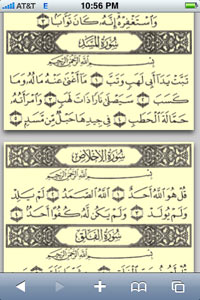 AT&T E 10:56 PM
وَاسْتَغْفِرْهُ إِنَّهُ كَانَ تَوَّابًا
سُورَةُ المَسَد
بِسْمِ اللَّهِ الرَّحْمَٰنِ الرَّحِيمِ
تَبَّتْ يَدَا أَبِي لَهَبٍ وَتَبَّ ١ مَا أَغْنَىٰ عَنْهُ مَالُهُ وَمَا
كَسَبَ ٢ سَيَصْلَىٰ نَارًا ذَاتَ لَهَبٍ ٣ وَامْرَأَتُهُ
حَمَّالَةَ الْحَطَبِ ٤ فِي جِيدِهَا حَبْلٌ مِّن مَّسَدٍ ٥
سُورَةُ الإِخْلَاصِ
بِسْمِ اللَّهِ الرَّحْمَٰنِ الرَّحِيمِ
قُلْ هُوَ اللَّهُ أَحَدٌ ١ اللَّهُ الصَّمَدُ ٢ لَمْ يَلِدْ
وَلَمْ يُولَدْ ٣ وَلَمْ يَكُن لَّهُ كُفُوًا أَحَدٌ ٤
سُورَةُ الْفَلَقِ
بِسْمِ اللَّهِ الرَّحْمَٰنِ الرَّحِيمِ